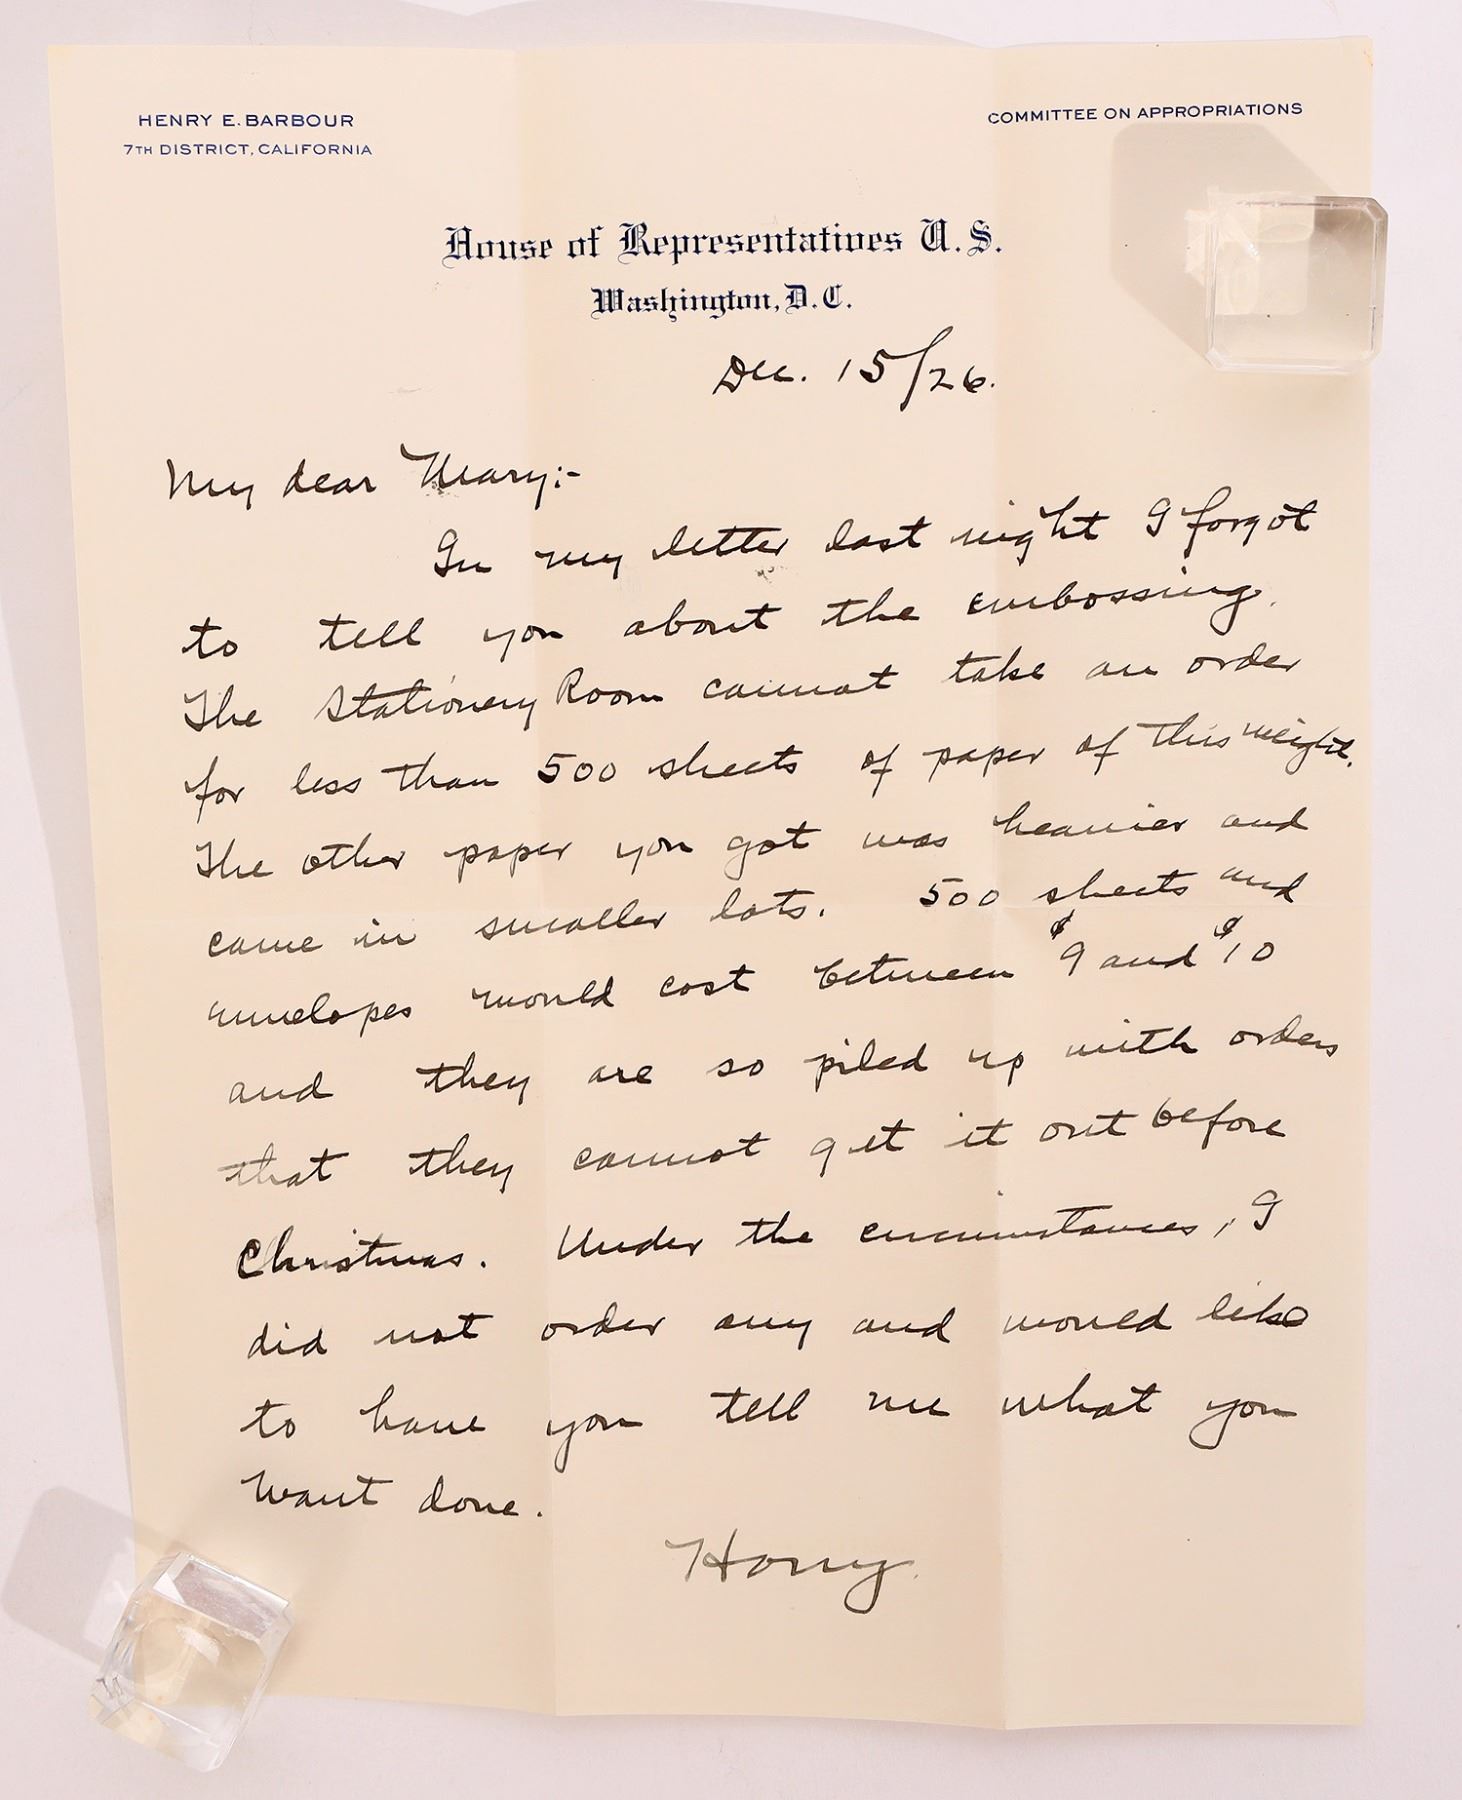 HENRY E. BARBOUR
7TH DISTRICT, CALIFORNIA
COMMITTEE ON APPROPRIATIONS
House of Representatives U.S.
Washington, D.C.
Dec. 15/26.
My dear Mary:-
In my letter last night I forgot
to tell you about the embossing.
The Stationery Room cannot take an order
for less than 500 sheets of paper of this weight.
The other paper you got was heavier and
came in smaller lots. 500 sheets and
envelopes would cost between $9 and $10
and they are so piled up with orders
that they cannot get it out before
Christmas. Under the circumstances, I
did not order any and would like
to have you tell me what you
want done.
Harry.